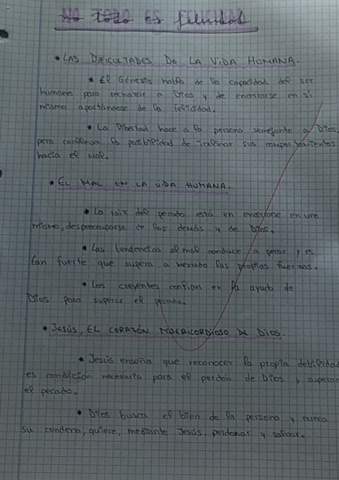 No todo es felicidad
• LAS DIFICULTADES DE LA VIDA HUMANA.
• El Génesis habla de la capacidad del ser
humano para rechazar a Dios y de encerrarse en sí
mismo apartándose de la felicidad.
• La libertad hace a la persona semejante a Dios,
pero conlleva la posibilidad de inclinar sus comportamientos
hacia el mal.
• EL MAL EN LA VIDA HUMANA.
• La raíz del pecado está en encerrarse en uno
mismo, despreocuparse de los demás y de Dios.
• Las tendencias al mal conduce a pecar y es
tan fuerte que supera a menudo las propias fuerzas.
• Los creyentes confían en la ayuda de
Dios para superar el pecado.
• JESÚS, EL CORAZÓN MISERICORDIOSO DE DIOS.
• Jesús enseña que reconocer la propia debilidad
es condición necesaria para el perdón de Dios y superar
el pecado.
• Dios busca el bien de la persona y nunca
su condena, quiere, mediante Jesús, perdonar y salvar.